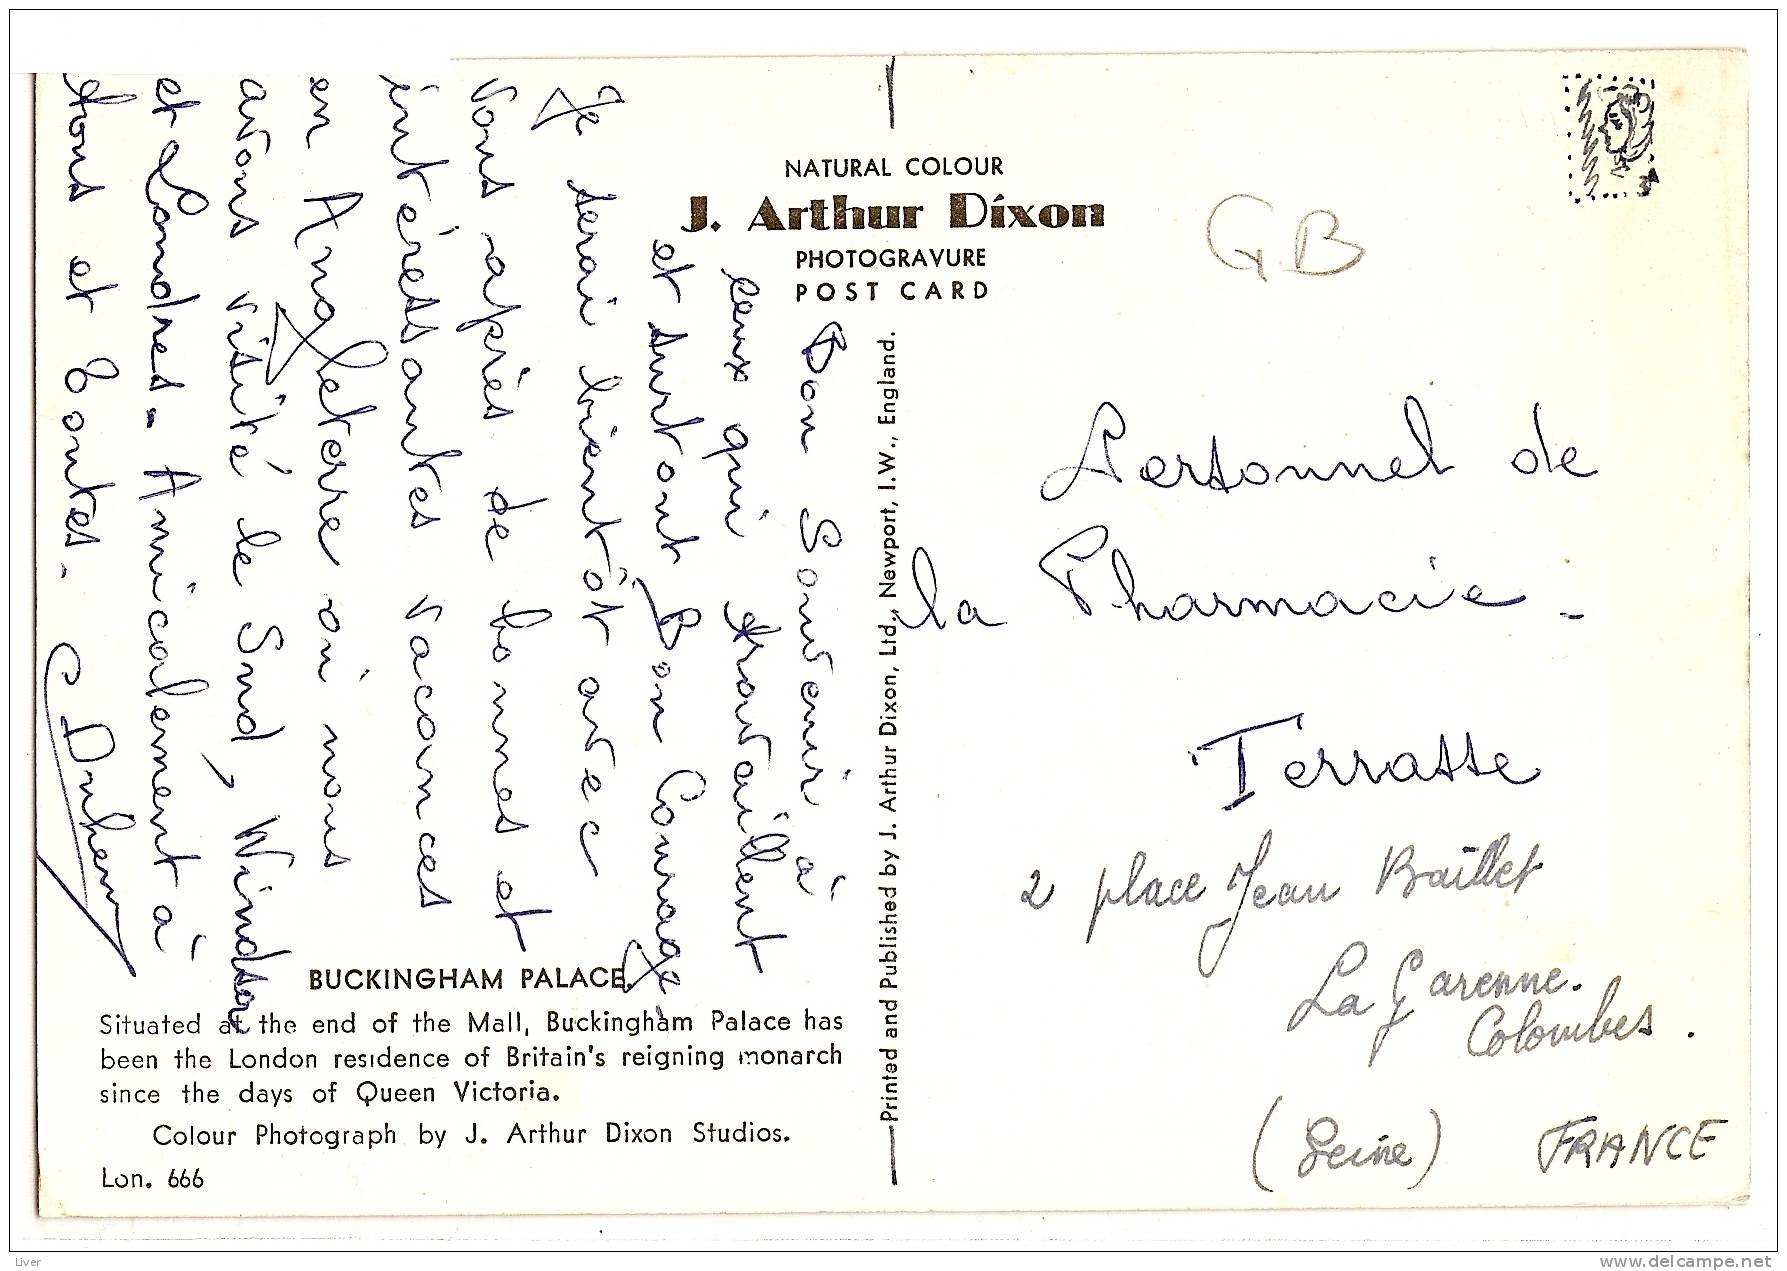 NATURAL COLOUR
J. Arthur Dixon
PHOTOGRAVURE
POST CARD
GB
Bon Souvenir à
ceux qui travaillent
et surtout Bon Courage.
Je serai bientôt avec
vous après de bonnes et
intéressantes vacances
en Angleterre où nous
avons visité le Sud, Windsor
et Londres. Amicalement à
tous et toutes.
Personnel de
la Pharmacie -
Terrasse
2 place Jean Baillet
La Garenne.
Colombes.
(Seine) FRANCE
Printed and Published by J. Arthur Dixon, Ltd., Newport, I.W., England.
BUCKINGHAM PALACE.
Situated at the end of the Mall, Buckingham Palace has
been the London residence of Britain's reigning monarch
since the days of Queen Victoria.
Colour Photograph by J. Arthur Dixon Studios.
Lon. 666
Liver
www.delcampe.net